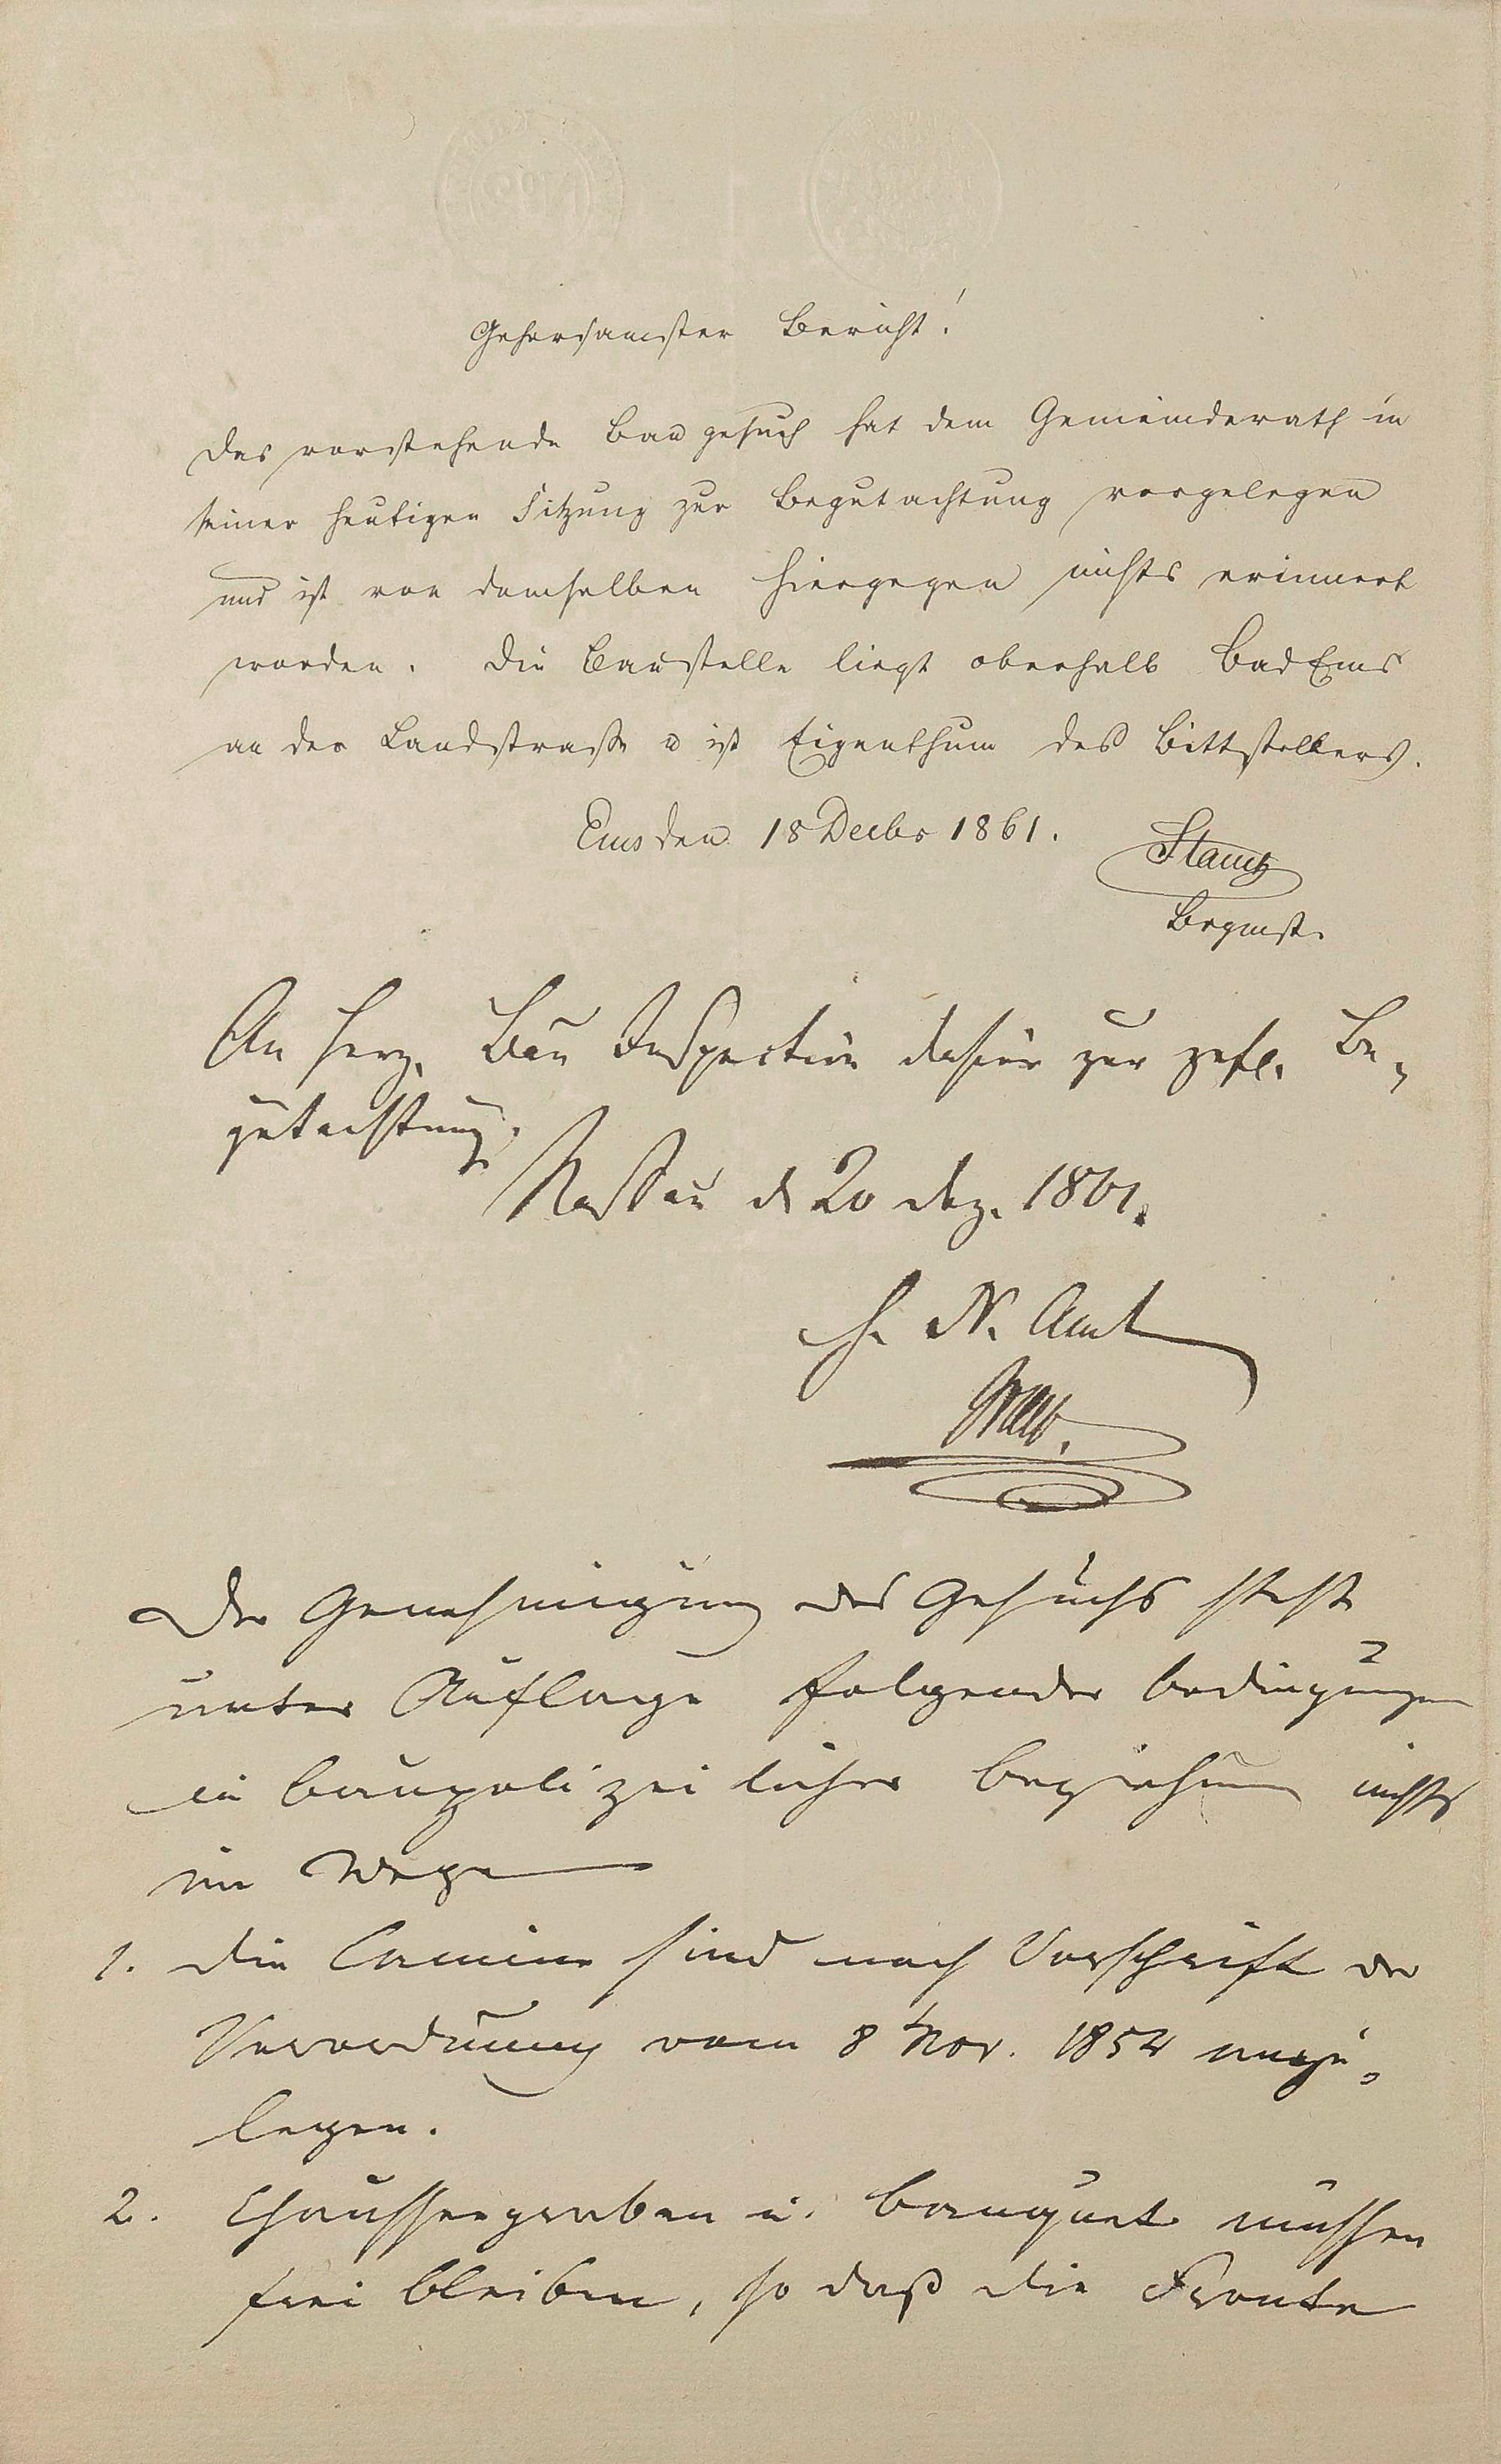 Gehorsamster Bericht!
Das vorstehende Baugesuch hat dem Gemeinderath in
seiner heutigen Sitzung zur Begutachtung vorgelegen
und ist von demselben hiergegen nichts erinnert
worden. Die Baustelle liegt oberhalb Bad Ems
an der Landstraße u ist Eigenthum des Bittstellers.
Ems den 18 Decbr 1861.
Bürgmstr.
An Herz. Bau Inspection dahier zur gefl. Be-
gutachtung.
Nassau d 20 Dez. 1861.
H. N. Amt
Der Genehmigung des Gesuchs steht
unter Auflage folgender Bedingungen
in baupolizeilicher Beziehung nichts
im Wege
1. Die Camine sind nach Vorschrift der
Verordnung vom 8 Nov. 1854 anzu-
legen.
2. Chausseegraben u. Banquet müssen
frei bleiben, so daß die Fronte